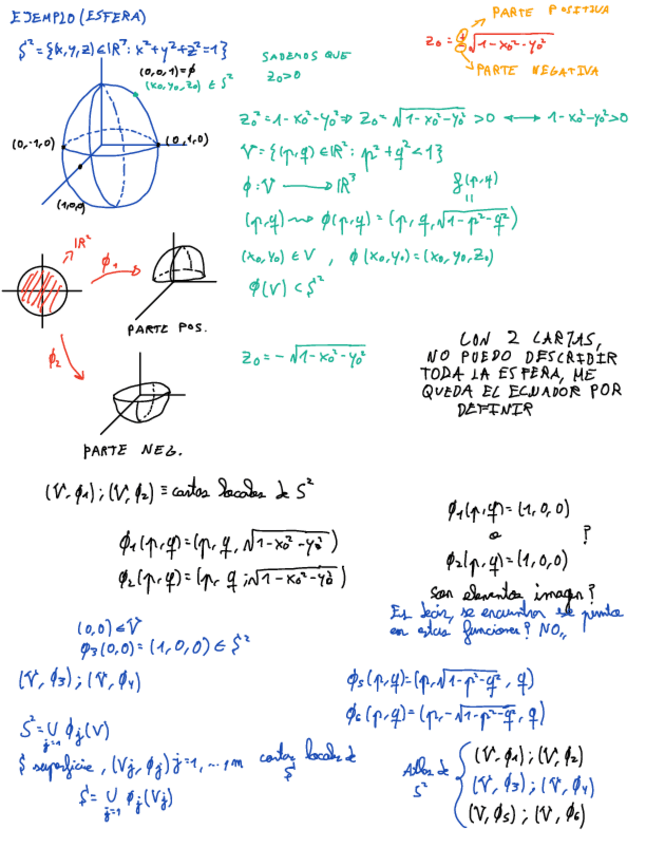 EJEMPLO (ESFERA)
S² = {(x,y,z) ∈ IR³ : x²+y²+z²=1}
PARTE POSITIVA
z₀ = ± √1-x₀²-y₀²
PARTE NEGATIVA
(0,0,1)=ϕ
(x₀,y₀,z₀) ∈ S²
(0,-1,0)
(0,1,0)
(1,0,0)
SABEMOS QUE
z₀>0
z₀²=1-x₀²-y₀² ⇒ z₀=√1-x₀²-y₀² >0 ⟷ 1-x₀²-y₀²>0
V={(p,q) ∈ IR² : p²+q²<1}
ϕ: V ⟶ IR³
f(p,q)
=
(p,q) ⇝ ϕ(p,q) = (p, q, √1-p²-q²)
(x₀,y₀) ∈ V , ϕ(x₀,y₀)=(x₀,y₀,z₀)
ϕ(V) ⊂ S²
IR²
ϕ₁
PARTE POS.
ϕ₂
PARTE NEG.
z₀=-√1-x₀²-y₀²
CON 2 CARTAS,
NO PUEDO DESCRIBIR
TODA LA ESFERA, ME
QUEDA EL ECUADOR POR
DEFINIR
(V,ϕ₁) ; (V,ϕ₂) ≡ cartas locales de S²
ϕ₁(p,q)=(p, q, √1-x₀²-y₀²)
ϕ₂(p,q)=(p, q, √1-x₀²-y₀²)
ϕ₁(p,q)=(1,0,0)
o ?
ϕ₂(p,q)=(1,0,0)
son elementos imagen?
Es decir, se encuentra ese punto
en estas funciones? NO,,
(0,0) ∈ V
ϕ₃(0,0)=(1,0,0) ∈ S²
(V,ϕ₃) ; (V,ϕ₄)
ϕ₅(p,q)=(p, √1-p²-q², q)
ϕ₆(p,q)=(p, -√1-p²-q², q)
S²= ∪ ϕj(V)
j=1
S superficie, (Vj, ϕj) j=1, ..., m cartas locales de S
S= ∪ ϕj(Vj)
j=1
Atlas de S²
(V,ϕ₁) ; (V,ϕ₂)
(V,ϕ₃) ; (V,ϕ₄)
(V,ϕ₅) ; (V,ϕ₆)